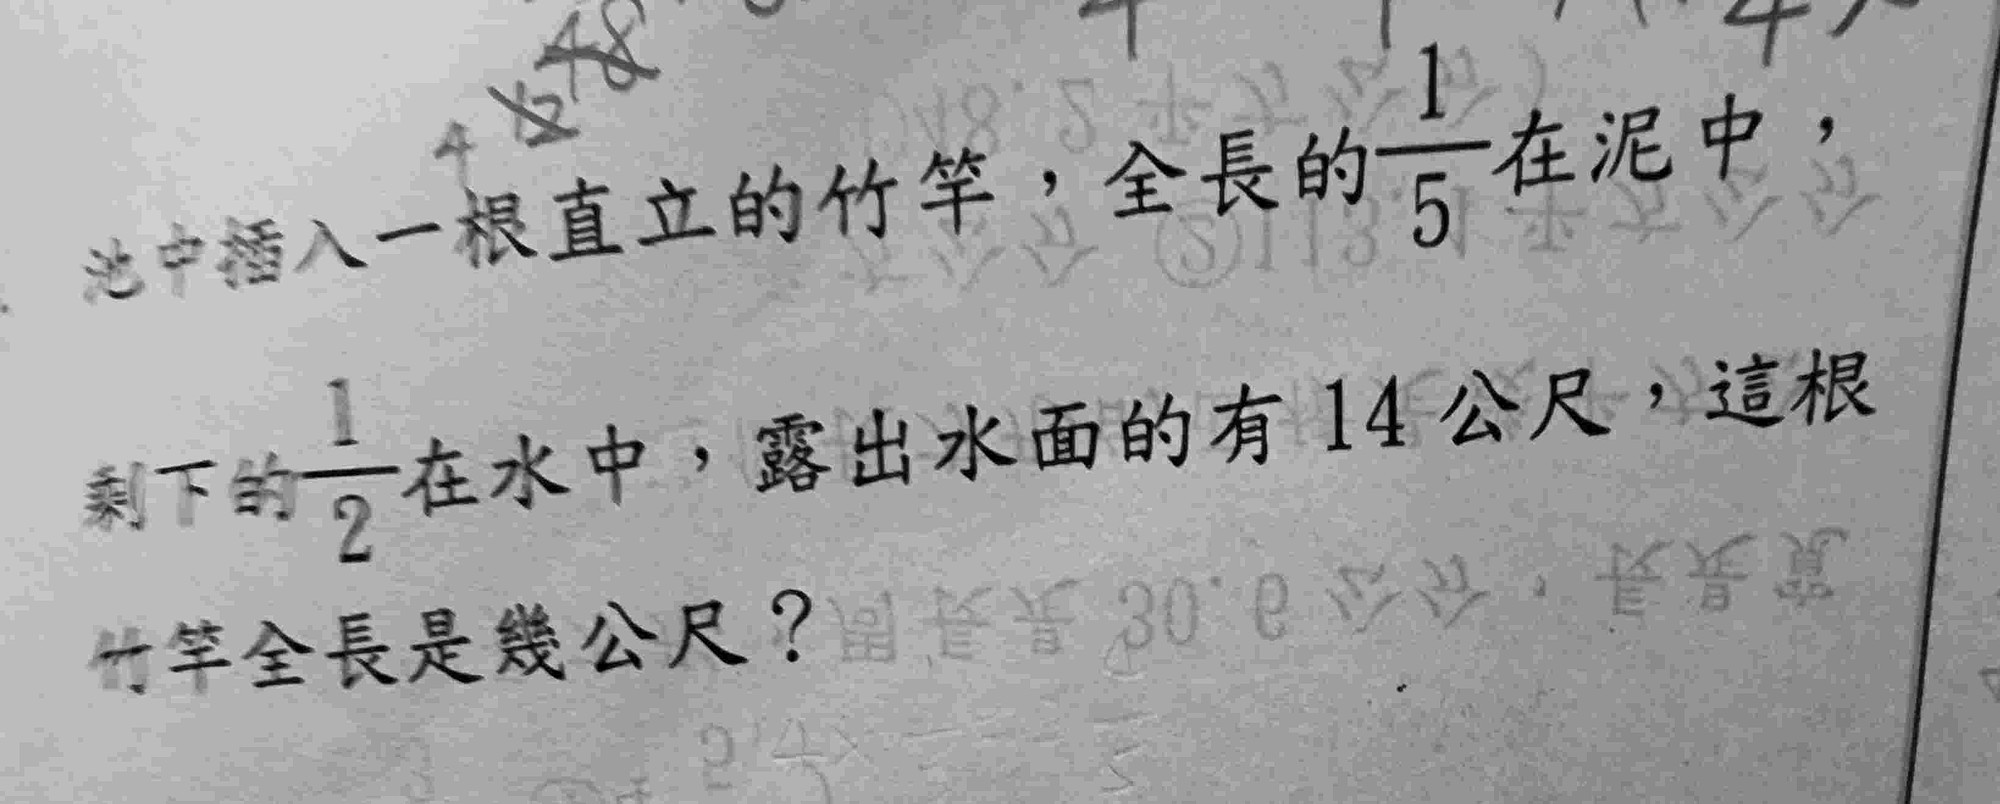 48
12
4
池中插入一根直立的竹竿，全長的1/5在泥中，
剩下的1/2在水中，露出水面的有14公尺，這根
竹竿全長是幾公尺？